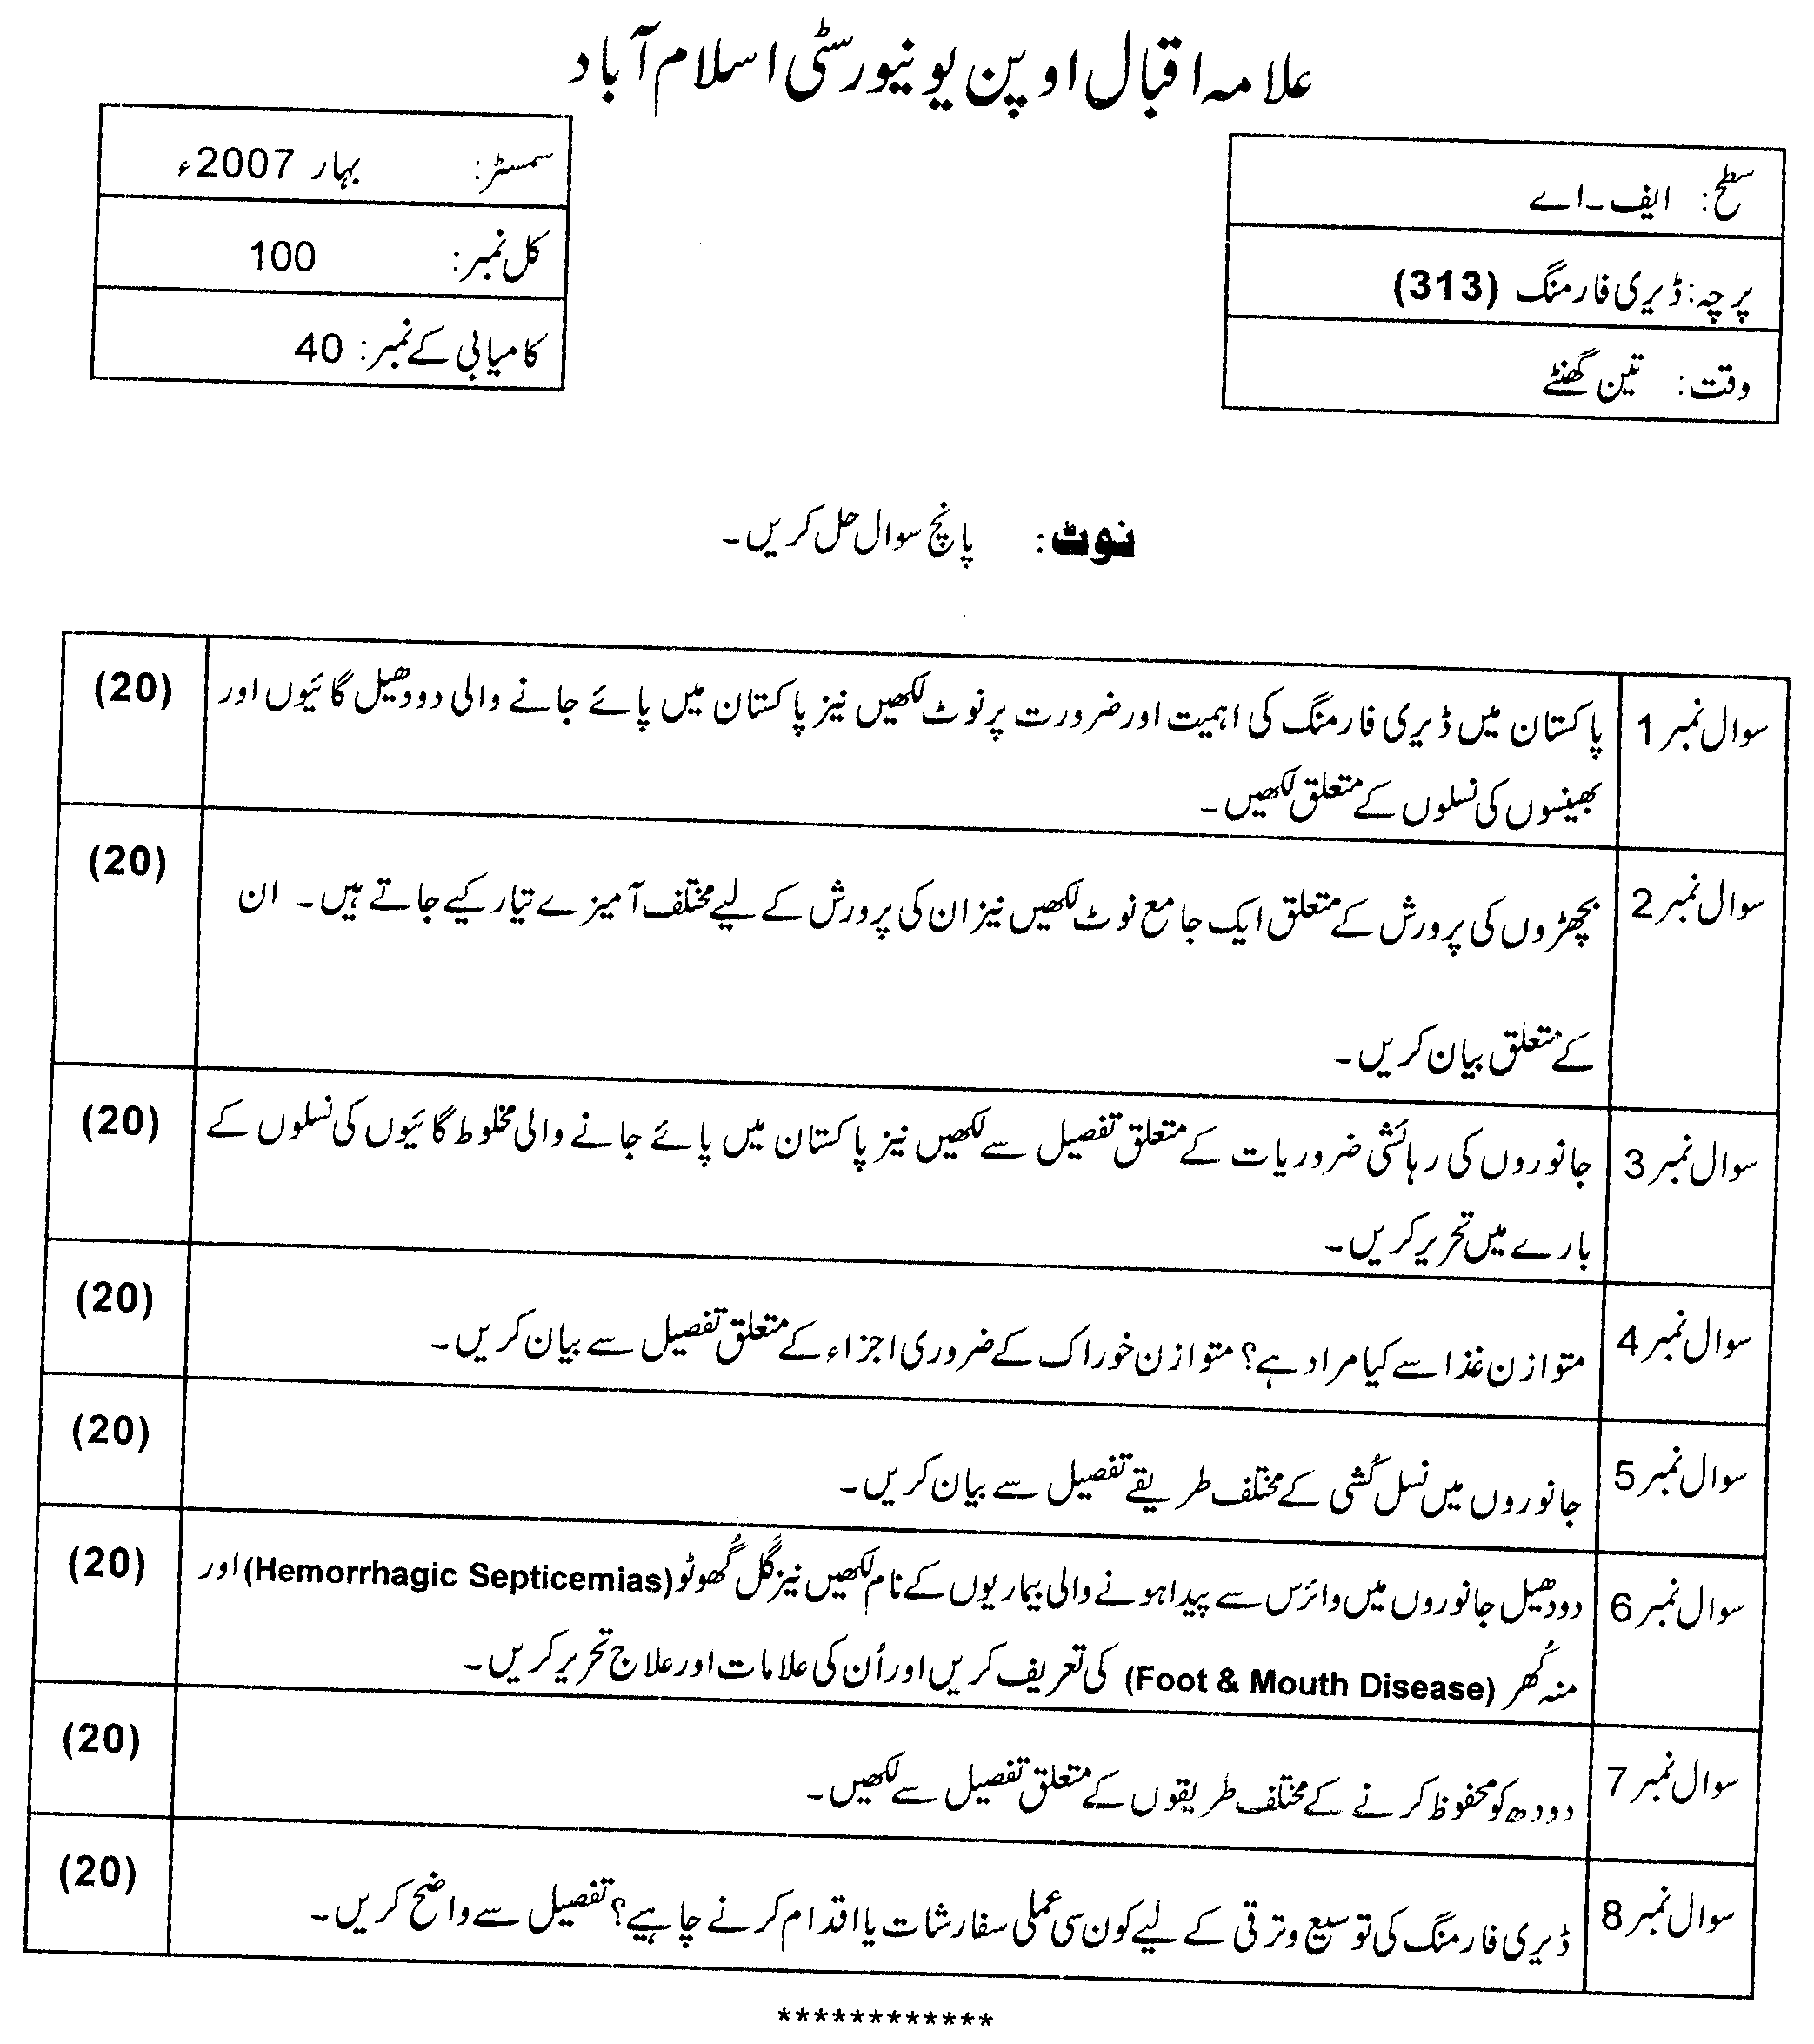 علامہ اقبال اوپن یونیورسٹی اسلام آباد
سطح: ایف۔اے
پرچہ: ڈیری فارمنگ (313)
وقت: تین گھنٹے
سمسٹر: بہار 2007ء
کل نمبر: 100
کامیابی کے نمبر: 40
نوٹ: پانچ سوال حل کریں۔
سوال نمبر 1 پاکستان میں ڈیری فارمنگ کی اہمیت اور ضرورت پر نوٹ لکھیں نیز پاکستان میں پائے جانے والی دودھیل گائیوں اور (20)
بھینسوں کی نسلوں کے متعلق لکھیں۔
سوال نمبر 2 بچھڑوں کی پرورش کے متعلق ایک جامع نوٹ لکھیں نیز ان کی پرورش کے لیے مختلف آمیزے تیار کیے جاتے ہیں۔ ان (20)
کے متعلق بیان کریں۔
سوال نمبر 3 جانوروں کی رہائشی ضروریات کے متعلق تفصیل سے لکھیں نیز پاکستان میں پائے جانے والی مخلوط گائیوں کی نسلوں کے (20)
بارے میں تحریر کریں۔
سوال نمبر 4 متوازن غذا سے کیا مراد ہے؟ متوازن خوراک کے ضروری اجزاء کے متعلق تفصیل سے بیان کریں۔ (20)
سوال نمبر 5 جانوروں میں نسل کُشی کے مختلف طریقے تفصیل سے بیان کریں۔ (20)
سوال نمبر 6 دودھیل جانوروں میں وائرس سے پیدا ہونے والی بیماریوں کے نام لکھیں نیز گَل گُھوٹو (Hemorrhagic Septicemias) اور (20)
منہ کُھر (Foot & Mouth Disease) کی تعریف کریں اور اُن کی علامات اور علاج تحریر کریں۔
سوال نمبر 7 دودھ کو محفوظ کرنے کے مختلف طریقوں کے متعلق تفصیل سے لکھیں۔ (20)
سوال نمبر 8 ڈیری فارمنگ کی توسیع و ترقی کے لیے کون سی عملی سفارشات یا اقدام کرنے چاہیے؟ تفصیل سے واضح کریں۔ (20)
************